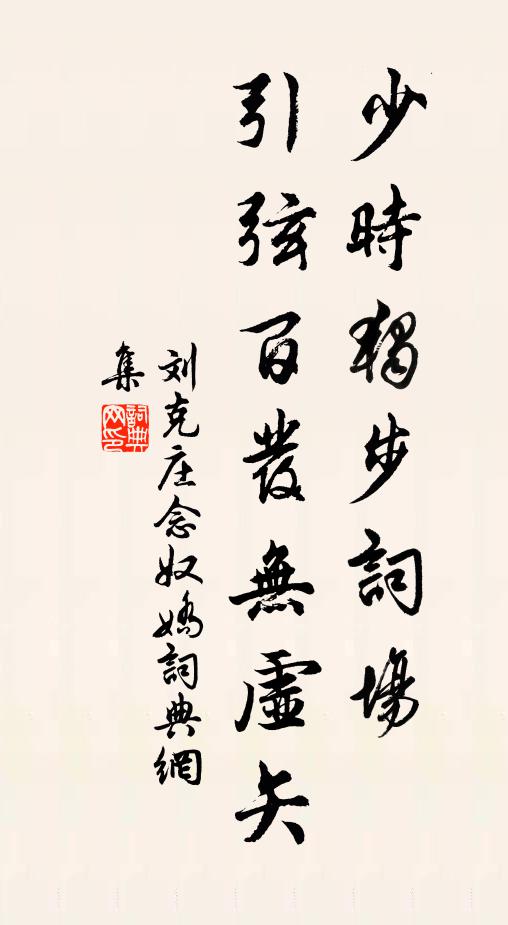 少時獨步詞場
引弦百發無虛矢
刘克庄念奴嬌詞典網
集
詞典网印